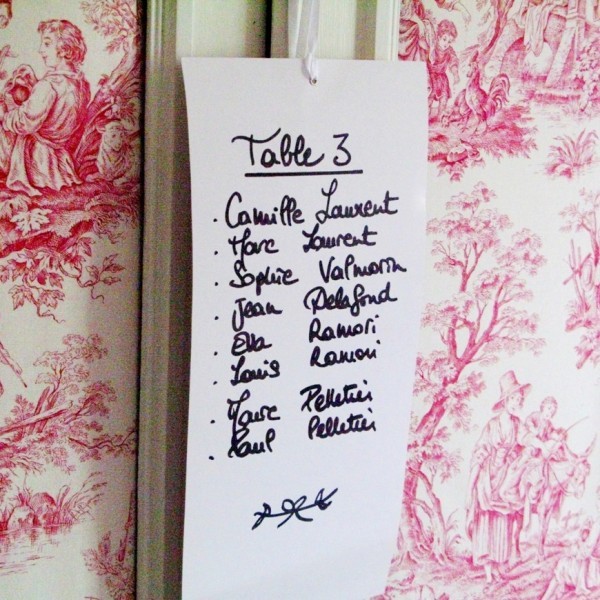 Table 3
. Camille Laurent
. Marc Laurent
. Sophie Valmorin
. Jean Delafond
. Eva Ramori
. Louis Ramori
. Marc Pelletier
. Paul Pelletier